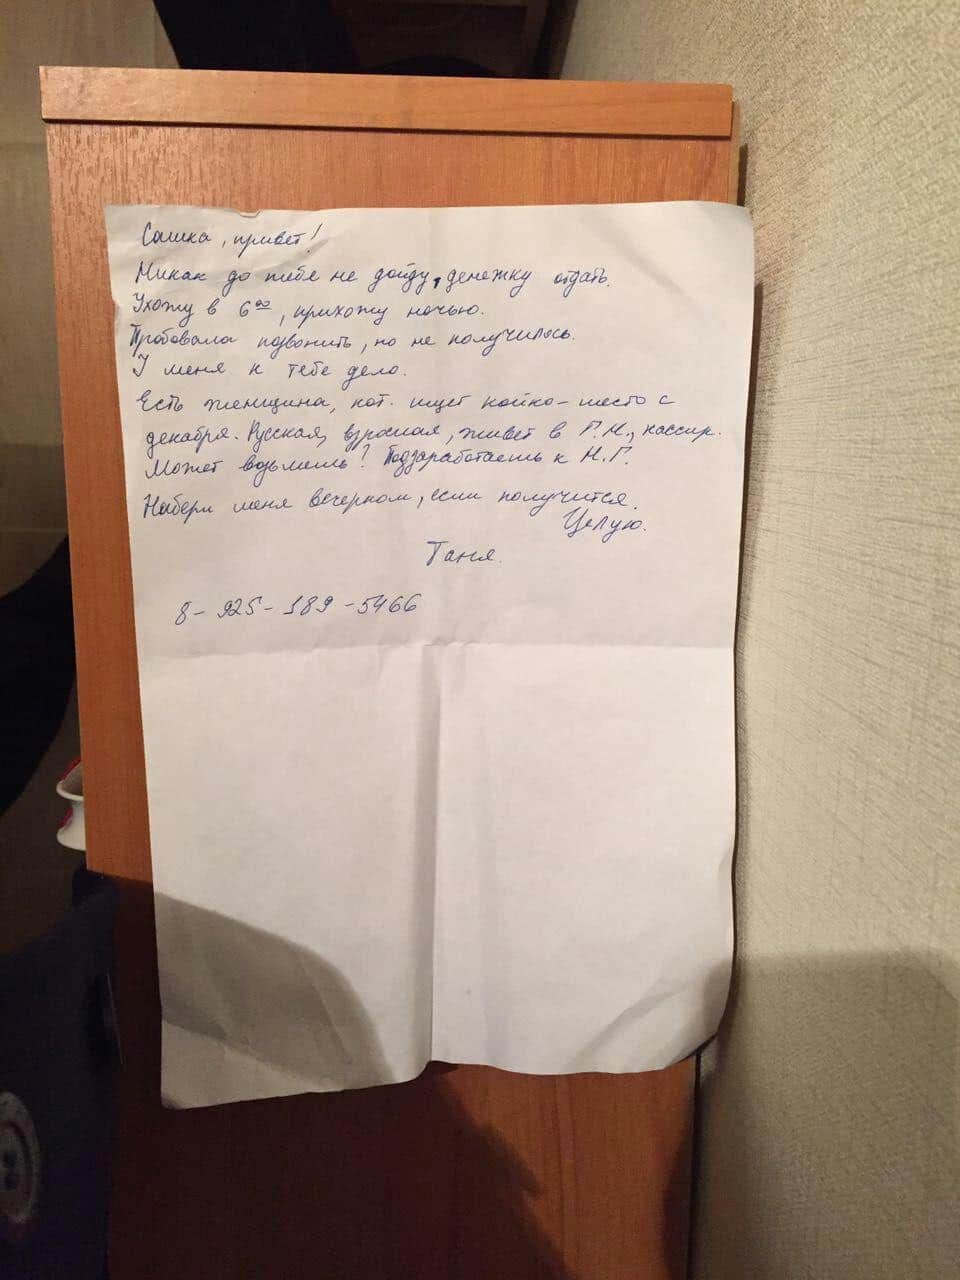 Сашка, привет!
Никак до тебе не дойду, денежку отдать.
Ухожу в 6⁰⁰, прихожу ночью.
Пробовала позвонить, но не получилось.
У меня к тебе дело.
Есть женщина, кот. ищет койко-место с
декабря. Русская, взрослая, живет в Г.Н., кассир.
Может возьмешь? Подзаработаешь к Н.Г.
Набери меня вечерком, если получится.
Целую.
Таня.
8-925-189-5466